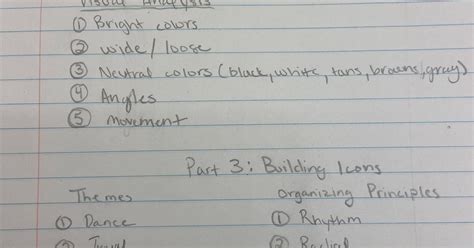 Visual Analysis
① Bright colors
② wide/loose
③ Neutral colors (black, white, tans, browns, gray)
④ Angles
⑤ movement
Part 3: Building Icons
Themes
Organizing Principles
① Dance
① Rhythm
② Travel
② Radial